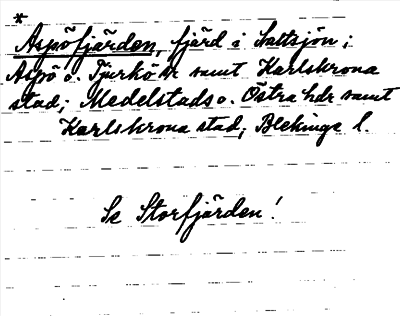 *
Aspöfjärden, fjärd i Saltsjön i
Aspö o. Tjurkö sr samt Karlskrona
stad; Medelstads o. Östra hdr samt
Karlskrona stad; Blekinge l.
Se Storfjärden!